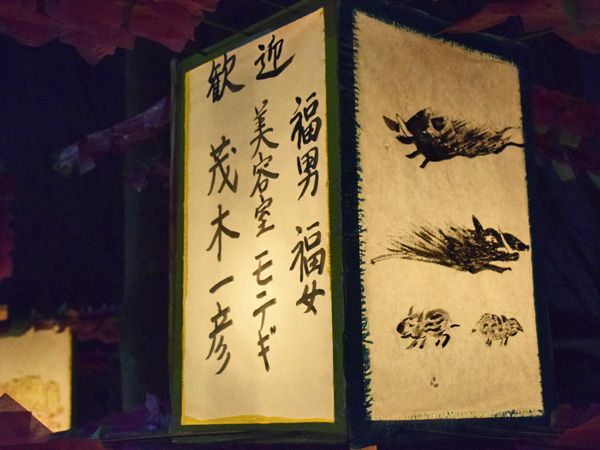 歓迎
福男 福女
美容室 モテギ
茂木一彦